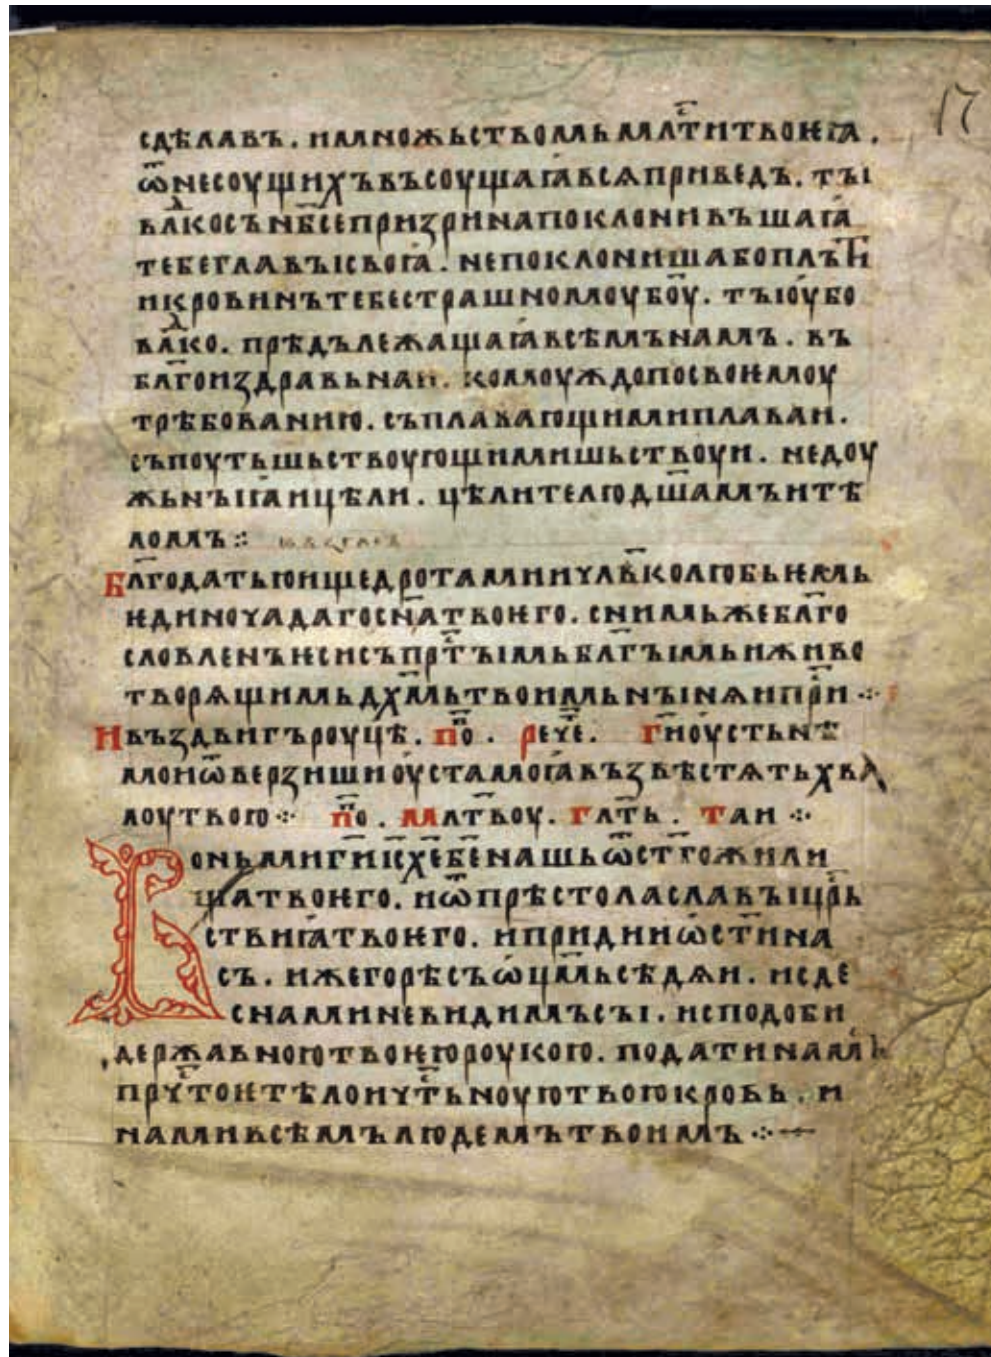 17
сдѣлавъ. имножьствомьмлⷭ҇титвоѥꙗ.
ѿнесоущихъвъсоущаꙗвсѧприведъ. ты
влⷣкосън҃бсепризринапоклонивъшаꙗ
тебеглавысвоꙗ. непоклонишабоплъти
икровинътебестрашномоубоу. тыоубо
влⷣко. прѣдълежащаꙗвсѣмънамъ. въ
бл҃гоиздравьнаи. комоуждопосвоѥмоу
трѣбованию. съплавающимиплаваи.
съпоутьшьствоующимишьствоуи. недоу
жьныꙗицѣли. цѣлителюдш҃амъитѣ
ломъ⁘
Бл҃годатьюищедротамиичл҃вколюбьѥмь
ѥдиночадагосн҃атвоѥго. снимьжебл҃го
словленъѥсисъпрⷭ҇тымьбл҃гымьиживо
творѧщимьдх҃мьтвоимьнынѧипрⷭ҇и⁘
Ивъздвигъроуцѣ. по҃. рече҃. Г҃иоустьнѣ
моиѿверзишиоустамоꙗвъзвѣстѧтьхва
лоутвою⁘ по҃. млт҃воу. глт҃ь. таи⁘
Воньмиг҃иіс҃хе҃бе҃нашьѿст҃гожили
щатвоѥго. иѿпрѣстолаславыцрⷭ҇ь
ствиꙗтвоѥго. ипридииѡст҃ина
съ. ижегорѣсъѡц҃мьсѣдѧи. исде
снаминевидимъсы. исподоби
державноютвоѥюроукою. податинамъ
прчⷭ҇тоѥтѣлоичⷭ҇тьноуютвоюкровь. и
намиивсѣмълюдемътвоимъ⁘